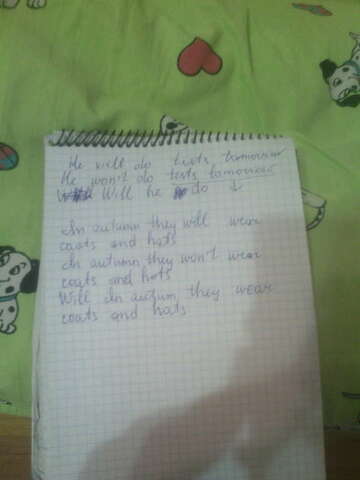 He will do tists tomorrow
He won't do tests tomorrow
Will he do ↓
In autumn they will wear
coats and hats
In autumn they won't wear
coats and hats
Will In autum, they wear
coats and hats